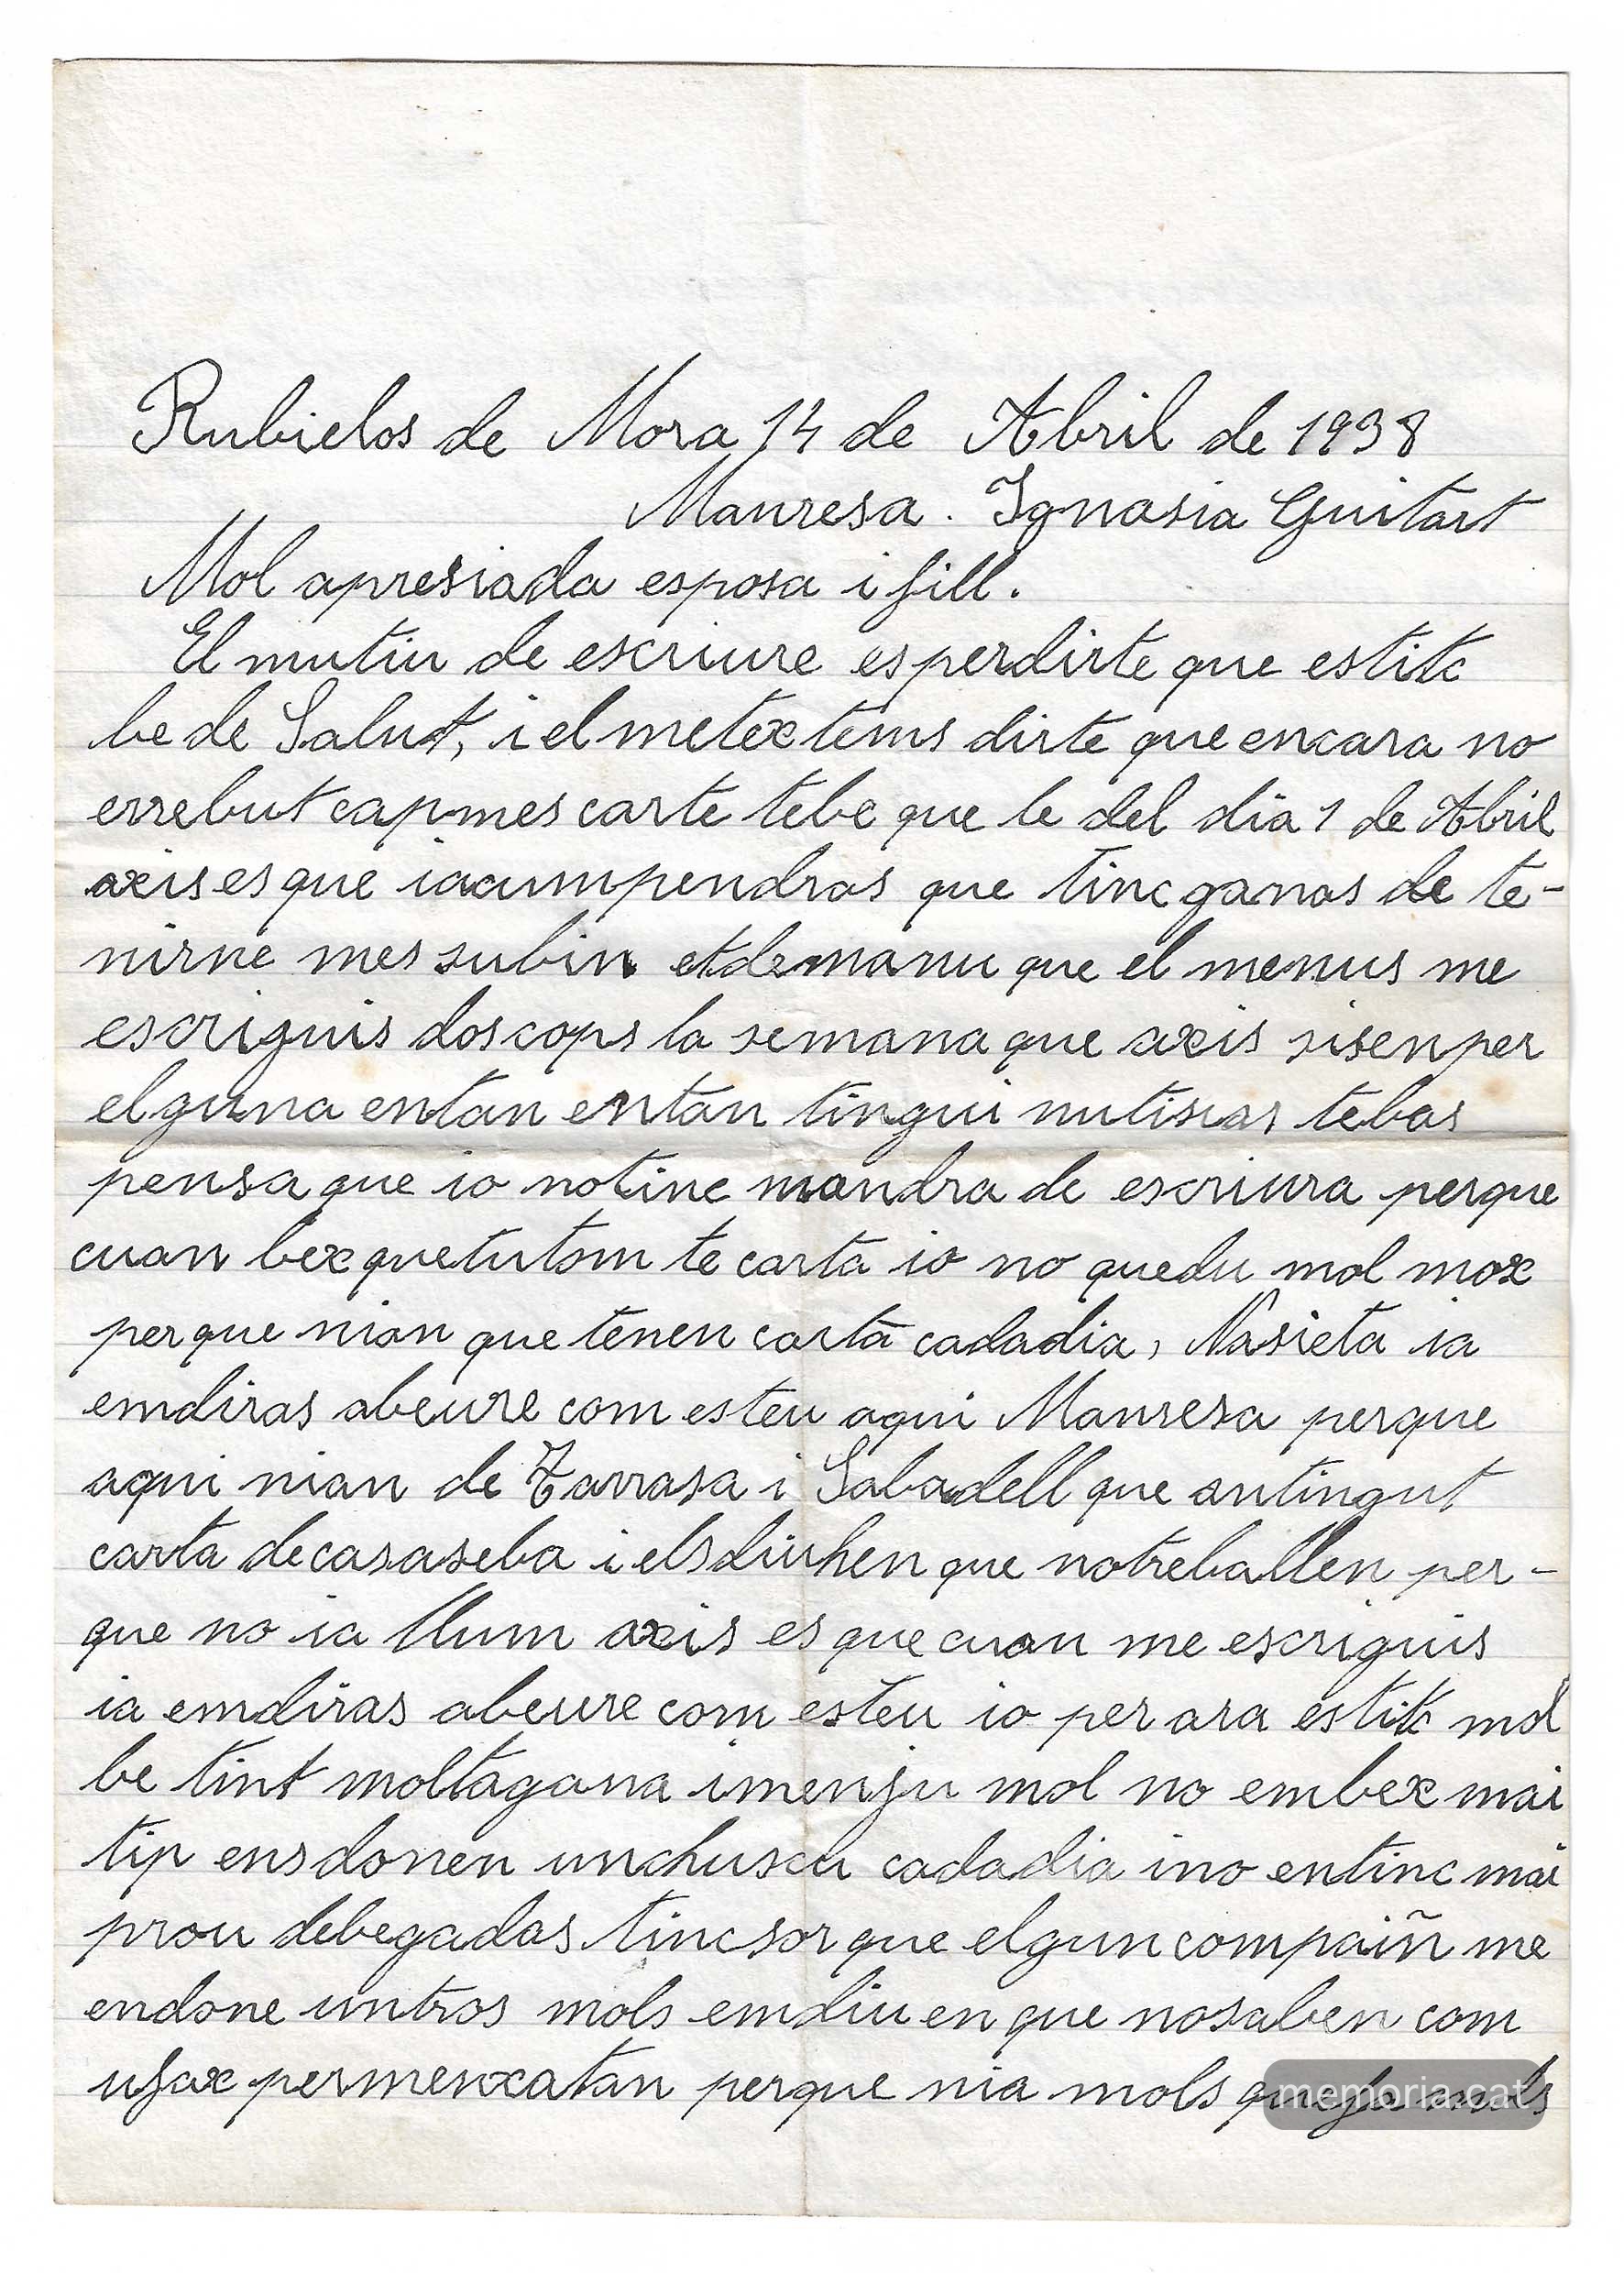 Rubielos de Mora 14 de Abril de 1938
Manresa. Ignasia Guitart
Mol apresiada esposa i fill.
El mutiu de escriure es perdirte que estitc
be de Salut, i el metex tems dirte que encara no
errebut cap mes carte tebe que le del dia 1 de Abril
axis es que iacumpendras que tinc ganas de te-
nirne mes subin et demanu que el menus me
escriguis dos cops la semana que axis sisenper
elguna entan entan tingui nutisias tebas
pensa que io no tinc mandra de escriura perque
cuan bex que tutom te carta io no quedu mol mox
per que nian que tenen carta cada dia, Nasieta ia
emdiras abeure com esteu aqui Manresa perque
aqui nian de Tarrasa i Sabadell que antingut
carta de casaseba i els diuhen que notreballen per-
que no ia llum axis es que cuan me escriguis
ia emdiras abeure com esteu io per ara estitc mol
be tint moltagana i menju mol no embex mai
tip ens donen unchuscu cada dia ino entinc mai
prou debegadas tinc sor que elgun compaiñ me
endone untros mols emdiuen que nosaben com
ufax permenxatan perque nia mols
memoria.cat